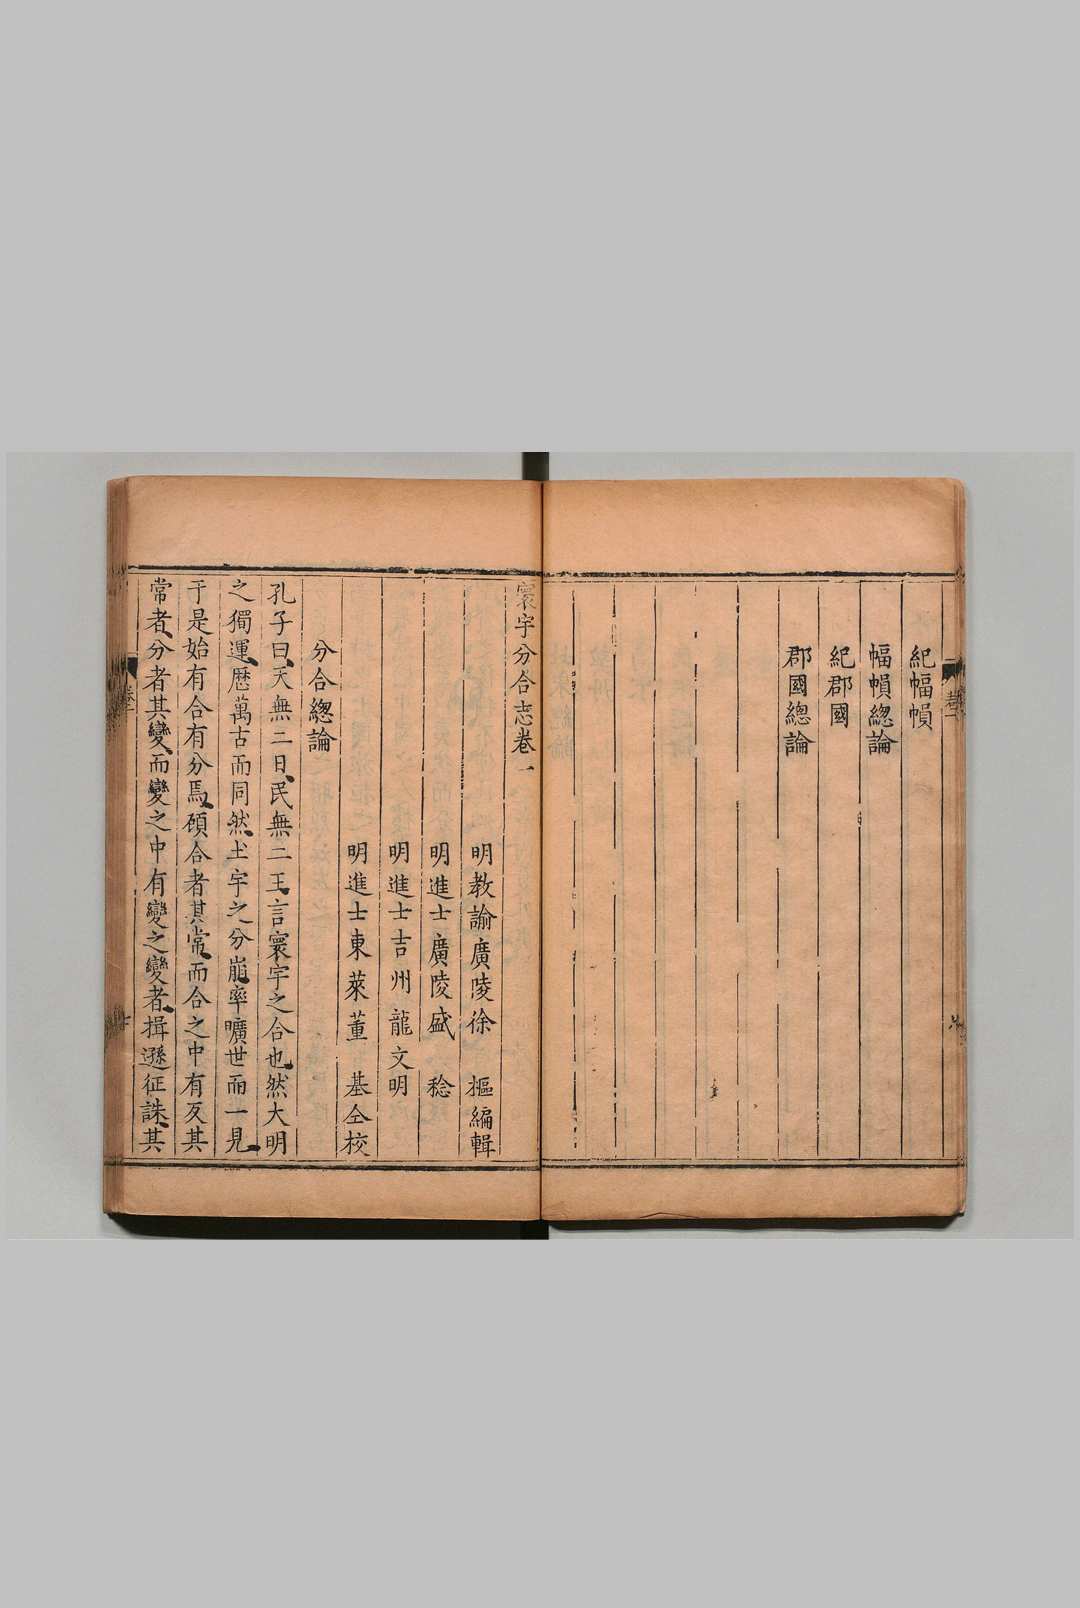 紀幅幀
幅幀總論
紀郡國
郡國總論
寰宇分合志卷一
明教諭廣陵徐　樞編輯
明進士廣陵盛　稔
明進士吉州龍文明
明進士東萊董　基仝校
分合總論
孔子曰天無二日民無二王言寰宇之合也然大明
之獨運歷萬古而同然土宇之分崩率曠世而一見
于是始有合有分焉碩合者其常而合之中有反其
常者分者其變而變之中有變之變者揖遜征誅其